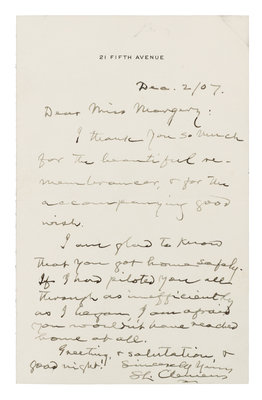 21 FIFTH AVENUE
Dec. 2/07.
Dear Miss Margery:
I thank you so much
for the beautiful re-
membrancer, & for the
accompanying good
wish.
I am glad to know
that you got home safely.
If I had piloted you all
through as inefficiently
as I began, I am afraid
you wouldn't have reached
home at all.
Greeting, & salutation, &
good night! Sincerely Yours
SL Clemens